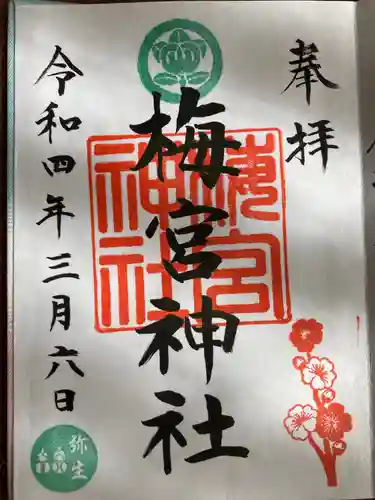 奉拝
梅宮神社
梅宮
神社
令和四年三月六日
弥生